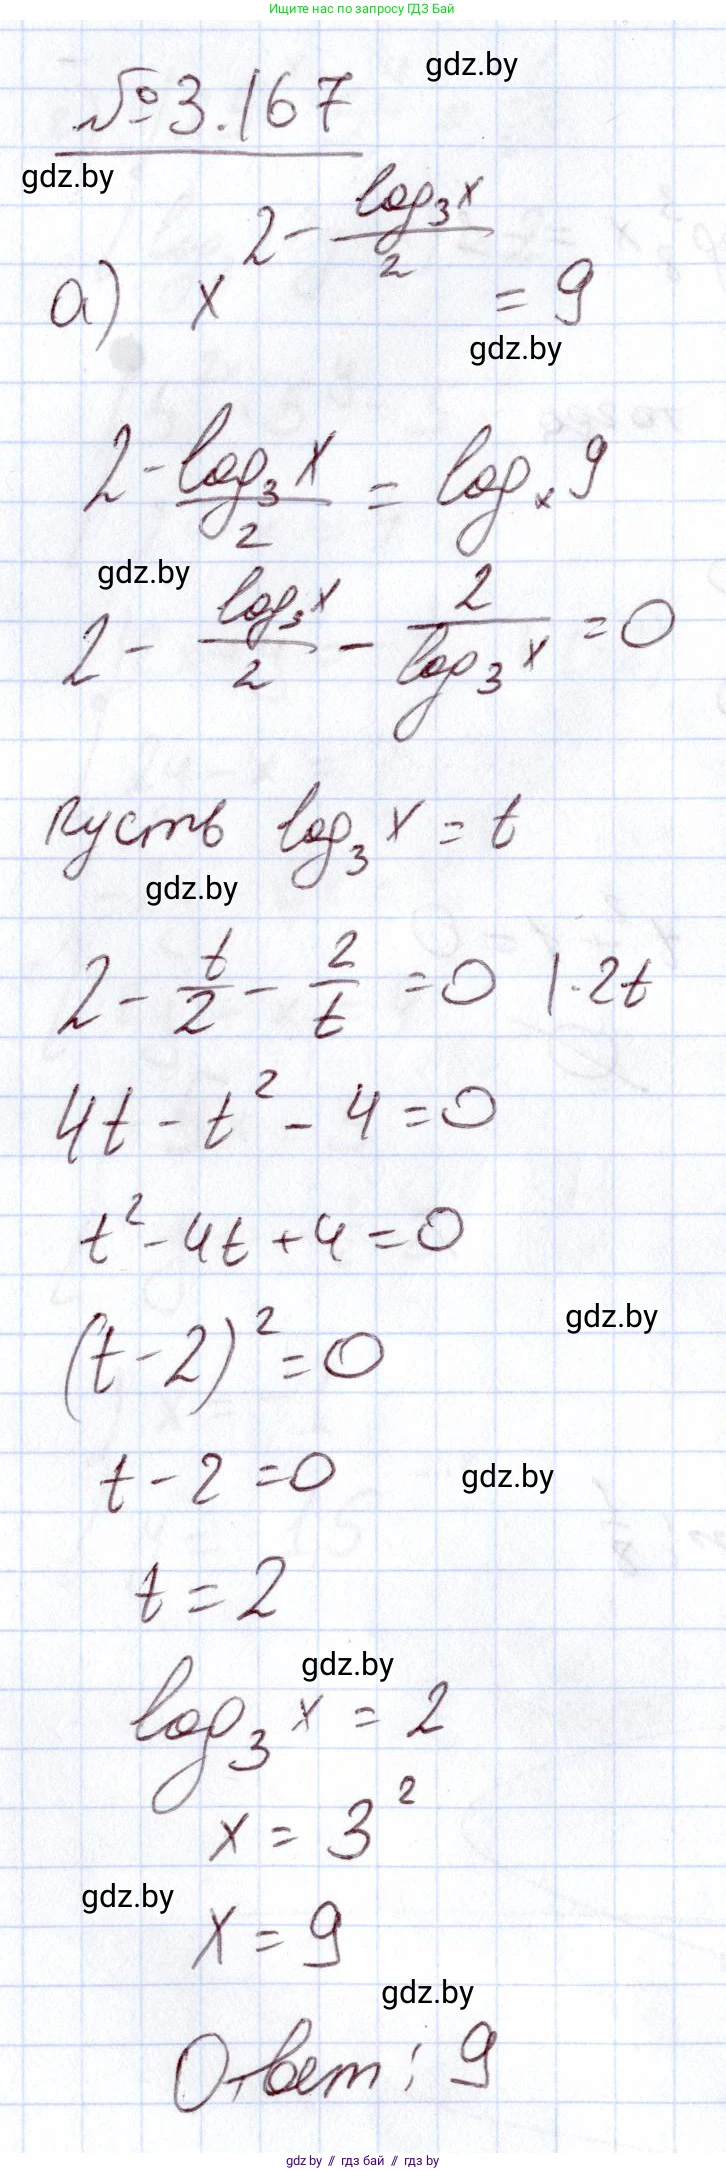 Ищите нас по запросу ГДЗ Бай
gdz.by
№ 3.167
gdz.by
а) x^(2 - log₃x / 2) = 9
gdz.by
2 - log₃x / 2 = logₓ9
gdz.by
2 - log₃x / 2 - 2 / log₃x = 0
пусть log₃x = t
gdz.by
2 - t/2 - 2/t = 0 | · 2t
4t - t² - 4 = 0
t² - 4t + 4 = 0
gdz.by
(t - 2)² = 0
t - 2 = 0
gdz.by
t = 2
gdz.by
log₃x = 2
x = 3²
gdz.by
x = 9
gdz.by
Ответ: 9
gdz.by // гдз бай // гдз by